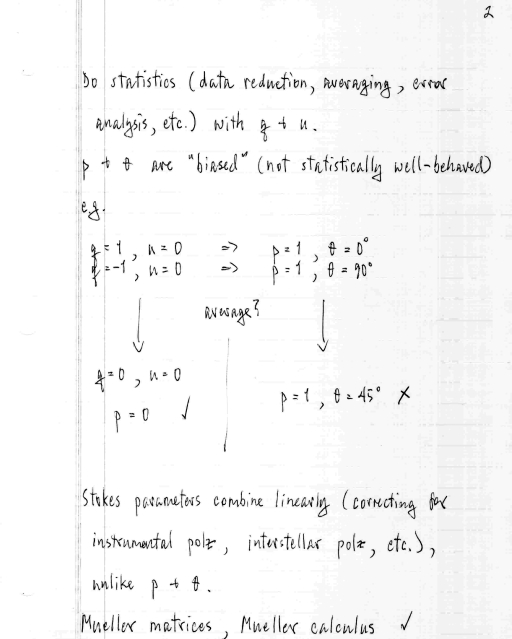 2
Do statistics (data reduction, averaging, error
analysis, etc.) with q + u.
p + θ are "biased" (not statistically well-behaved)
e.g.
q = 1, u = 0 => p = 1, θ = 0°
q = -1, u = 0 => p = 1, θ = 90°
average?
q = 0, u = 0
p = 1, θ = 45° ✗
p = 0 ✓
Stokes parameters combine linearly (correcting for
instrumental polz, interstellar polz, etc.),
unlike p + θ.
Mueller matrices, Mueller calculus ✓